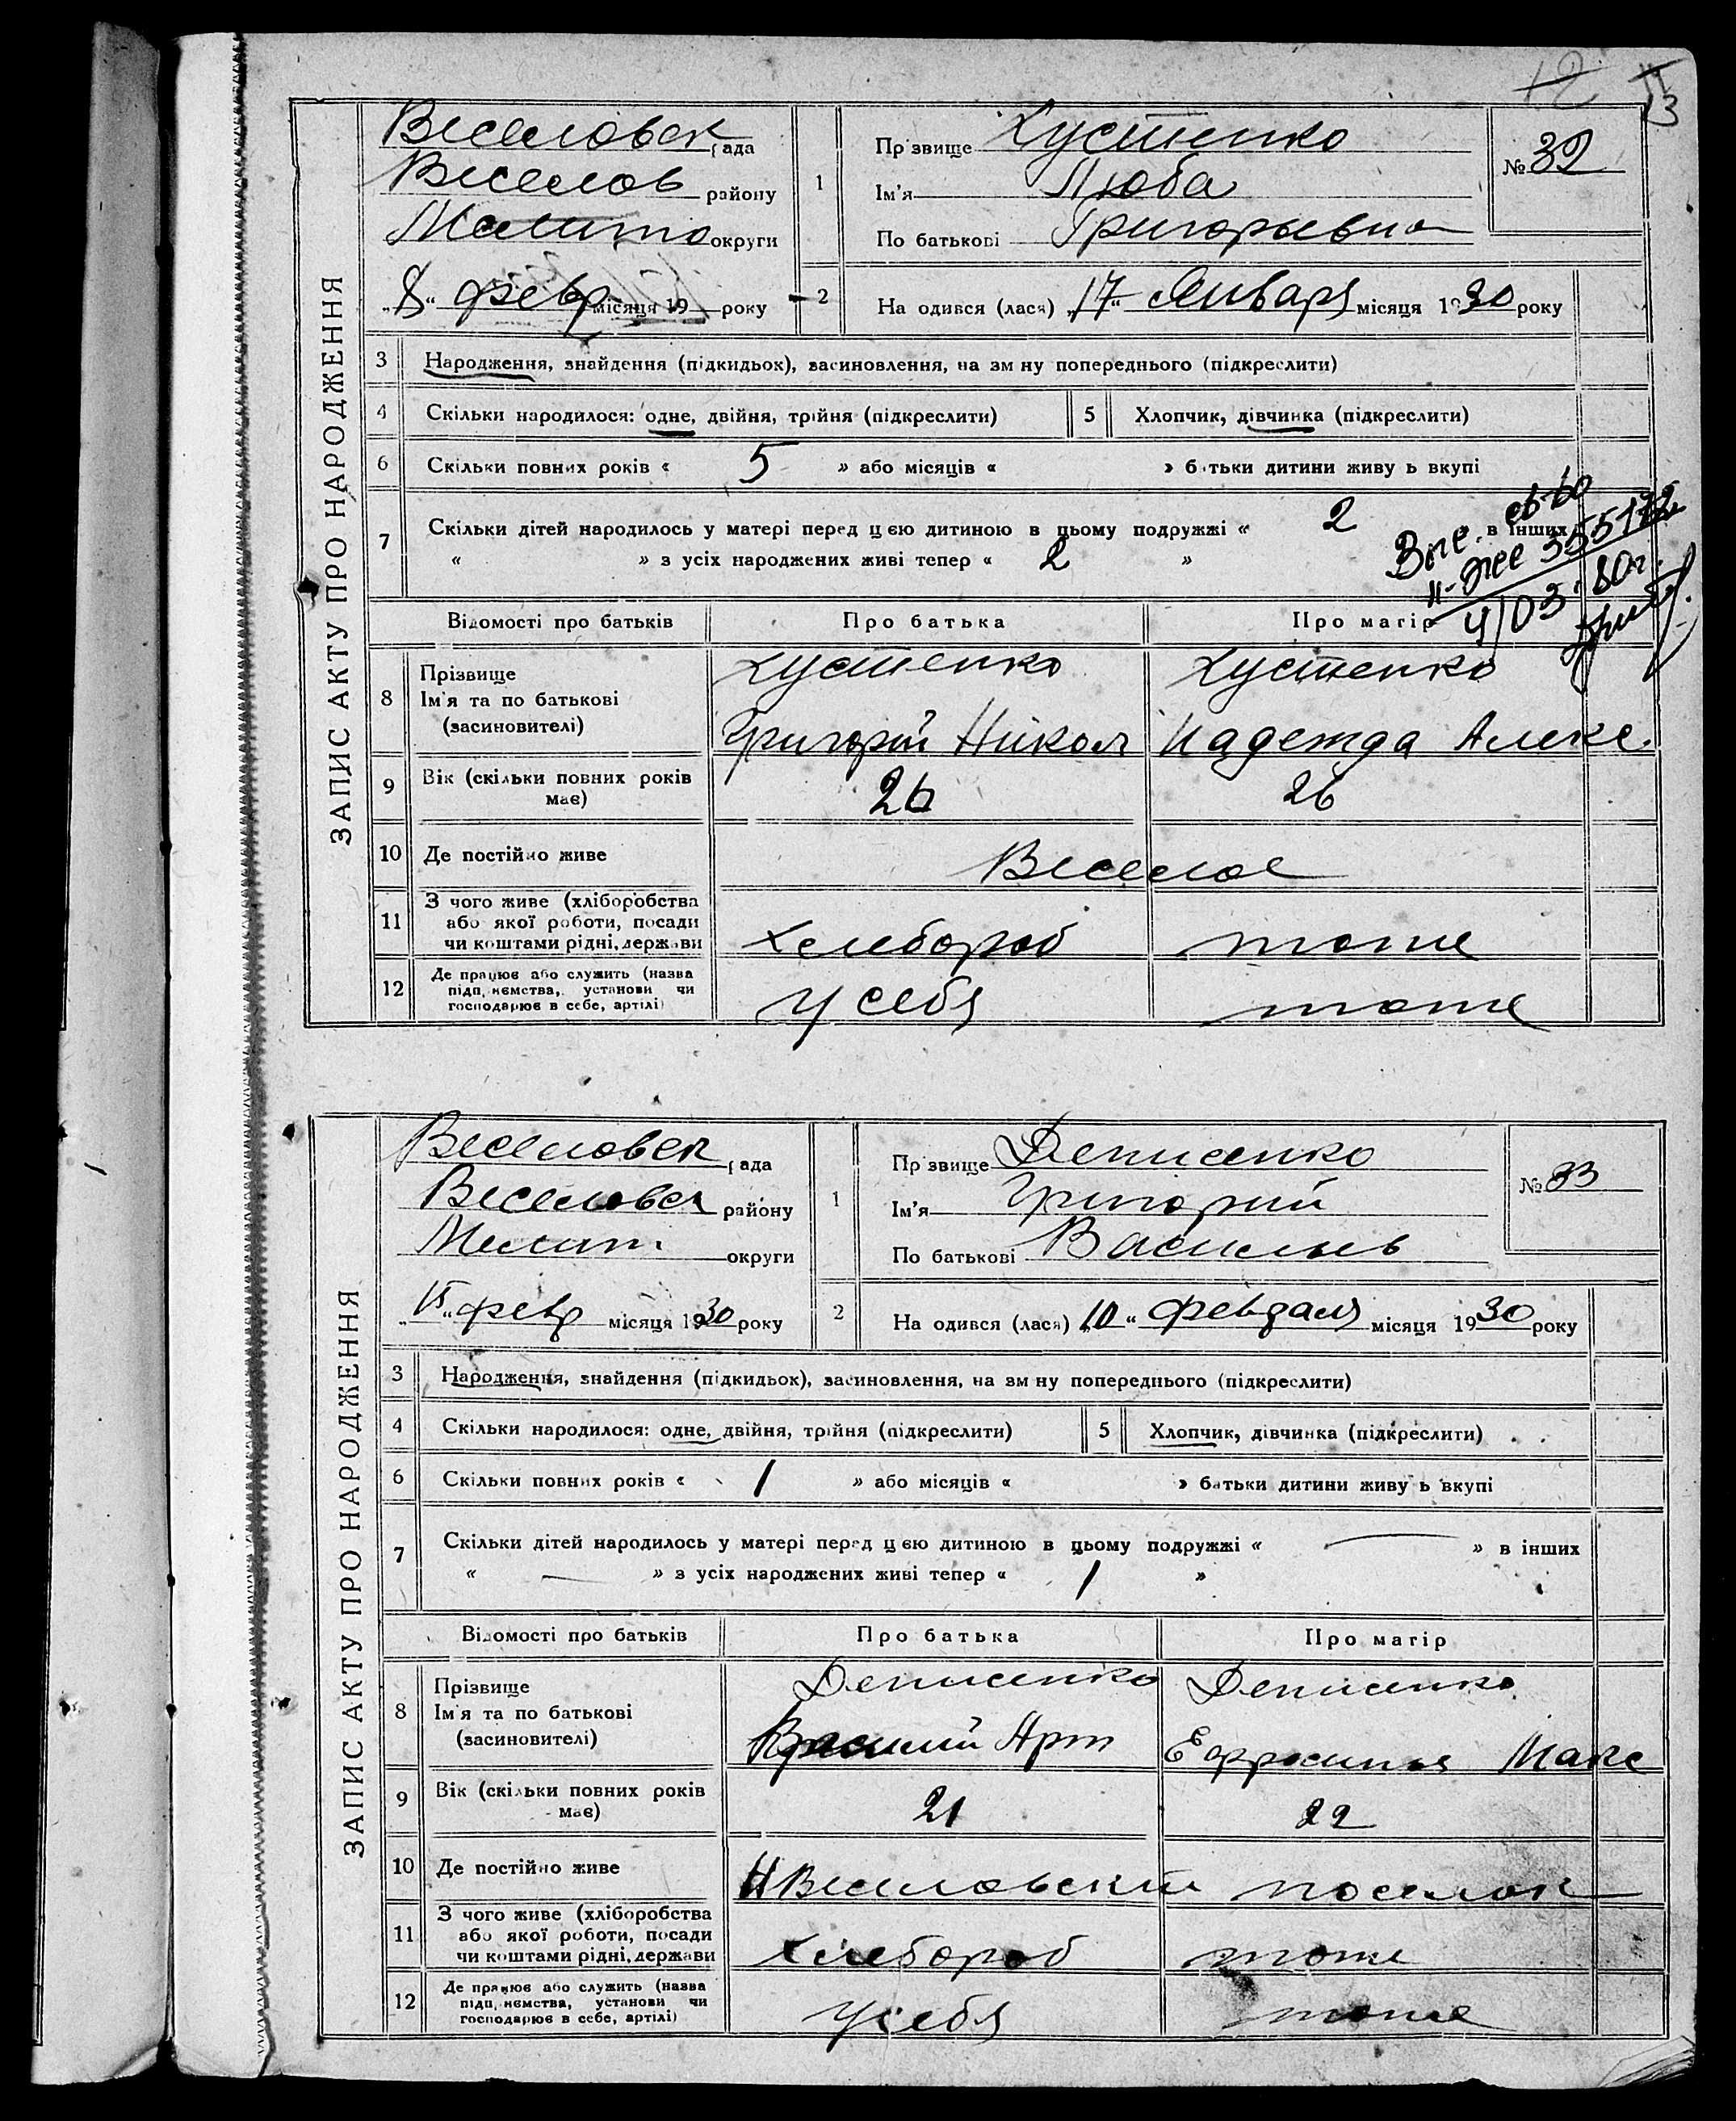 12 13
ЗАПИС АКТУ ПРО НАРОДЖЕННЯ
Веселовск рада
Веселов району
Мелито округи
„8“ февр місяця 19 року
1
Прізвище Хустенко
Ім'я Люба
По батькові Григорьевна
№ 32
2
На одився (лася) „17“ Января місяця 1930 року
3 Народження, знайдення (підкидьок), засиновлення, на зм ну попереднього (підкреслити)
4 Скільки народилося: одне, двійня, трійня (підкреслити) 5 Хлопчик, дівчинка (підкреслити)
6 Скільки повних років « 5 » або місяців « » батьки дитини живу ь вкупі
7 Скільки дітей народилось у матері перед цією дитиною в цьому подружжі « 2 в інших
« » з усіх народжених живі тепер « 2 »
св-во
355172
4/03.80г.
Відомості про батьків Про батька Про матір
8 Прізвище
Ім'я та по батькові
(засиновителі)
Хустенко Хустенко
Григорій Нікол Надежда Алекс.
9 Вік (скільки повних років
має)
26 26
10 Де постійно живе Веселое
11 З чого живе (хліборобства
або якої роботи, посади
чи коштами рідні, держави
Хлебороб тоже
12 Де працює або служить (назва
підп, ємства, установи чи
господарює в себе, артілі)
у себя тоже
ЗАПИС АКТУ ПРО НАРОДЖЕННЯ
Веселовск рада
Веселовск району
Мелит. округи
„15“ февр місяця 1930 року
1
Прізвище Денисенко
Ім'я Григорий
По батькові Васильев
№ 33
2
На одився (лася) „10“ февраля місяця 1930 року
3 Народження, знайдення (підкидьок), засиновлення, на зм ну попереднього (підкреслити)
4 Скільки народилося: одне, двійня, трійня (підкреслити) 5 Хлопчик, дівчинка (підкреслити)
6 Скільки повних років « 1 » або місяців « » батьки дитини живу ь вкупі
7 Скільки дітей народилось у матері перед цією дитиною в цьому подружжі « — » в інших
« — » з усіх народжених живі тепер « 1 »
Відомості про батьків Про батька Про матір
8 Прізвище
Ім'я та по батькові
(засиновителі)
Денисенко Денисенко
Василий Арт Ефросинья Макс
9 Вік (скільки повних років
має)
21 22
10 Де постійно живе Н Веселовский поселок
11 З чого живе (хліборобства
або якої роботи, посади
чи коштами рідні, держави
Хлебороб тоже
12 Де працює або служить (назва
підп, ємства, установи чи
господарює в себе, артілі)
у себя тоже